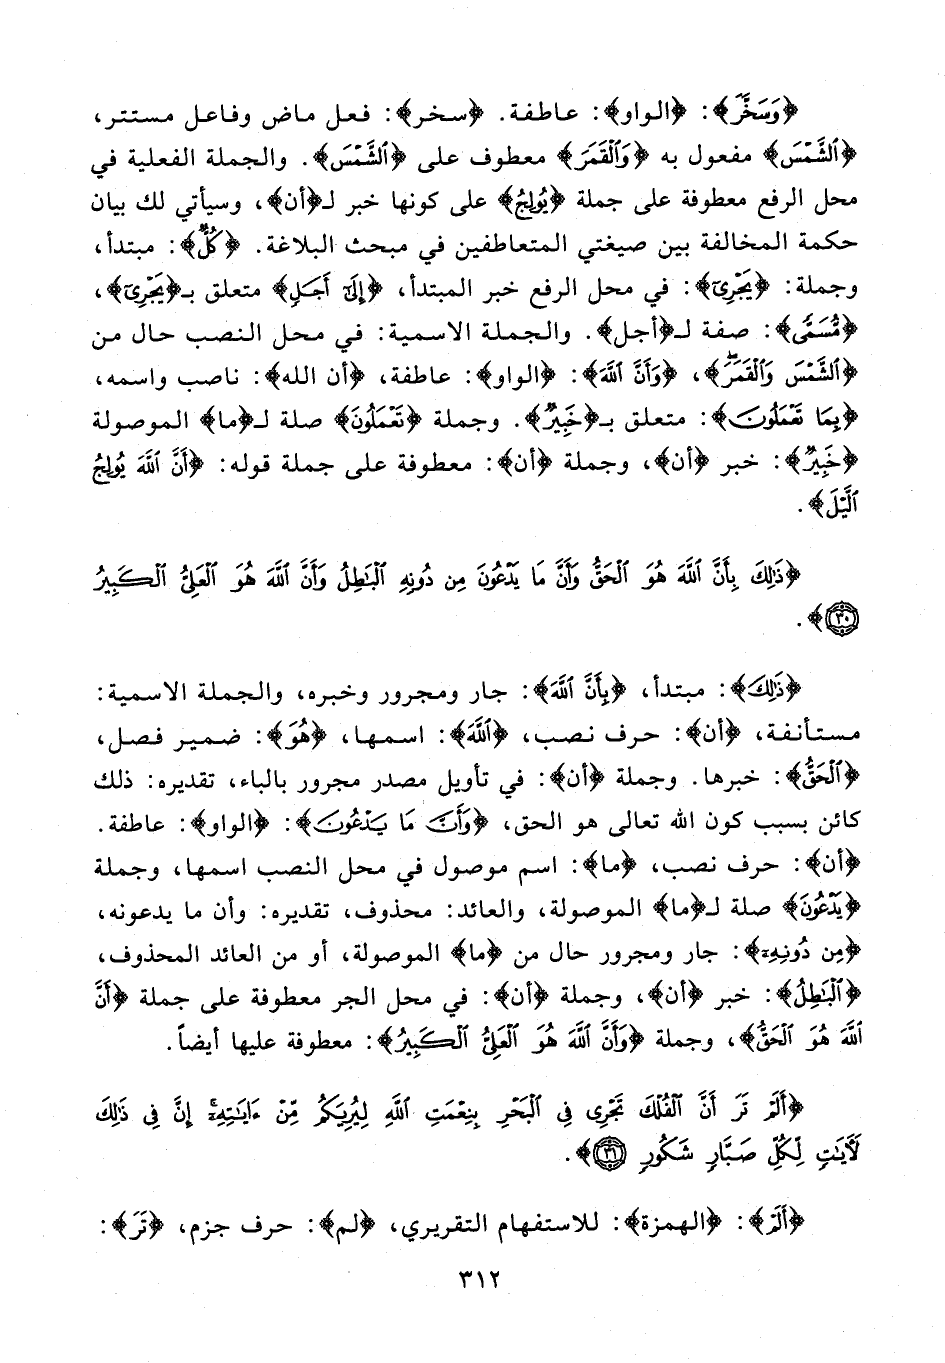 ﴿وَسَخَّرَ﴾: ﴿الواو﴾: عاطفة. ﴿سخر﴾: فعل ماض وفاعل مستتر،
﴿ٱلشَّمْسَ﴾ مفعول به ﴿وَٱلْقَمَرَ﴾ معطوف على ﴿ٱلشَّمْسَ﴾. والجملة الفعلية في
محل الرفع معطوفة على جملة ﴿يُولِجُ﴾ على كونها خبر لـ﴿أن﴾، وسيأتي لك بيان
حكمة المخالفة بين صيغتي المتعاطفين في مبحث البلاغة. ﴿كُلٌّ﴾: مبتدأ،
وجملة: ﴿يَجْرِىٓ﴾: في محل الرفع خبر المبتدأ، ﴿إِلَىٰٓ أَجَلٍ﴾ متعلق بـ﴿يَجْرِىٓ﴾،
﴿مُّسَمًّى﴾: صفة لـ﴿أجل﴾. والجملة الاسمية: في محل النصب حال من
﴿ٱلشَّمْسَ وَٱلْقَمَرَۖ﴾، ﴿وَأَنَّ ٱللَّهَ﴾: ﴿الواو﴾: عاطفة، ﴿أن الله﴾: ناصب واسمه،
﴿بِمَا تَعْمَلُونَ﴾: متعلق بـ﴿خَبِيرٌ﴾. وجملة ﴿تَعْمَلُونَ﴾ صلة لـ﴿ما﴾ الموصولة
﴿خَبِيرٌ﴾: خبر ﴿أن﴾، وجملة ﴿أن﴾: معطوفة على جملة قوله: ﴿أَنَّ ٱللَّهَ يُولِجُ
ٱلَّيْلَ﴾.
﴿ذَٰلِكَ بِأَنَّ ٱللَّهَ هُوَ ٱلْحَقُّ وَأَنَّ مَا يَدْعُونَ مِن دُونِهِ ٱلْبَٰطِلُ وَأَنَّ ٱللَّهَ هُوَ ٱلْعَلِىُّ ٱلْكَبِيرُ
٣٠﴾.
﴿ذَٰلِكَ﴾: مبتدأ، ﴿بِأَنَّ ٱللَّهَ﴾: جار ومجرور وخبره، والجملة الاسمية:
مستأنفة، ﴿أن﴾: حرف نصب، ﴿ٱللَّهَ﴾: اسمها، ﴿هُوَ﴾: ضمير فصل،
﴿ٱلْحَقُّ﴾: خبرها. وجملة ﴿أن﴾: في تأويل مصدر مجرور بالباء، تقديره: ذلك
كائن بسبب كون الله تعالى هو الحق، ﴿وَأَنَّ مَا يَدْعُونَ﴾: ﴿الواو﴾: عاطفة.
﴿أن﴾: حرف نصب، ﴿ما﴾: اسم موصول في محل النصب اسمها، وجملة
﴿يَدْعُونَ﴾ صلة لـ﴿ما﴾ الموصولة، والعائد: محذوف، تقديره: وأن ما يدعونه،
﴿مِن دُونِهِۦ﴾: جار ومجرور حال من ﴿ما﴾ الموصولة، أو من العائد المحذوف،
﴿ٱلْبَٰطِلُ﴾: خبر ﴿أن﴾، وجملة ﴿أن﴾: في محل الجر معطوفة على جملة ﴿أَنَّ
ٱللَّهَ هُوَ ٱلْحَقُّ﴾، وجملة ﴿وَأَنَّ ٱللَّهَ هُوَ ٱلْعَلِىُّ ٱلْكَبِيرُ﴾: معطوفة عليها أيضاً.
﴿أَلَمْ تَرَ أَنَّ ٱلْفُلْكَ تَجْرِى فِى ٱلْبَحْرِ بِنِعْمَتِ ٱللَّهِ لِيُرِيَكُم مِّنْ ءَايَٰتِهِۦٓ إِنَّ فِى ذَٰلِكَ
لَءَايَٰتٍ لِّكُلِّ صَبَّارٍ شَكُورٍ ٣١﴾.
﴿أَلَمْ﴾: ﴿الهمزة﴾: للاستفهام التقريري، ﴿لم﴾: حرف جزم، ﴿تَرَ﴾:
٣١٢